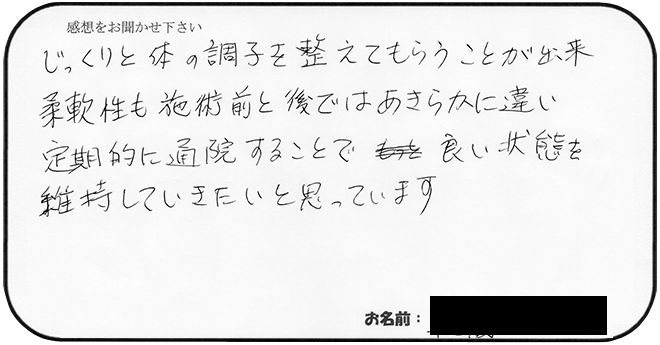 感想をお聞かせ下さい
じっくりと体の調子を整えてもらうことが出来
柔軟性も施術前と後ではあきらかに違い
定期的に通院することで 良い状態を
維持していきたいと思っています
お名前：